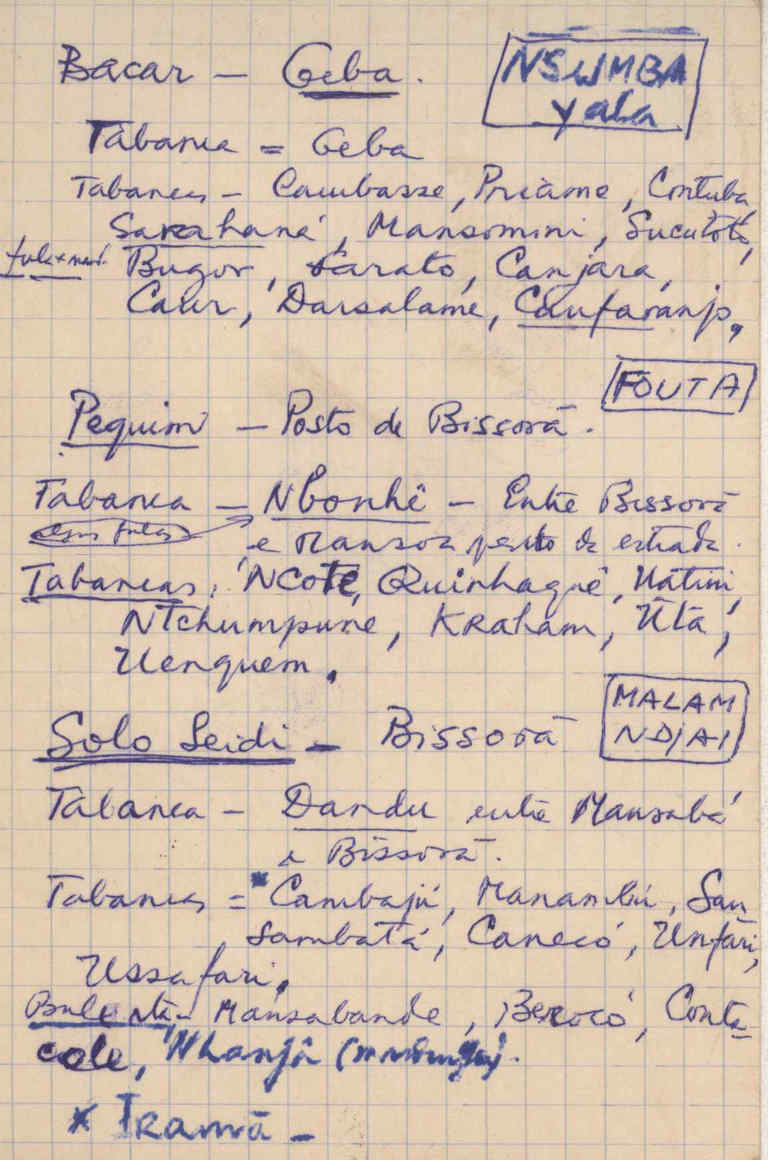 Bacar — Geba.
NSUMBA
yala
Tabanca = Geba
Tabancas — Cambasse, Priame, Contuba,
Sarahané, Mansomini, Sucutoto,
Bugor, Sarato, Canjara,
Caur, Darsalame, Caufaranjo,
FOUTA
Pequim — Posto de Bissorã.
Tabanca — Nbonhê — Entre Bissorã
e Mansoa perto da estrada.
Tabancas, NCote, Quinhaguê, Uatini,
Ntchumpune, Kraham, Uta,
Uenquem.
MALAM
NDJAI
Solo Seidi — Bissorã
Tabanca — Dandu entre Mansabá
e Bissorã.
Tabancas = * Cambajú, Manambú, San
Sambatá, Canecó, Unfari,
Ussafari.
Mansabande, Berocó, Conta-
cole, Nhanjã
* Iramã —